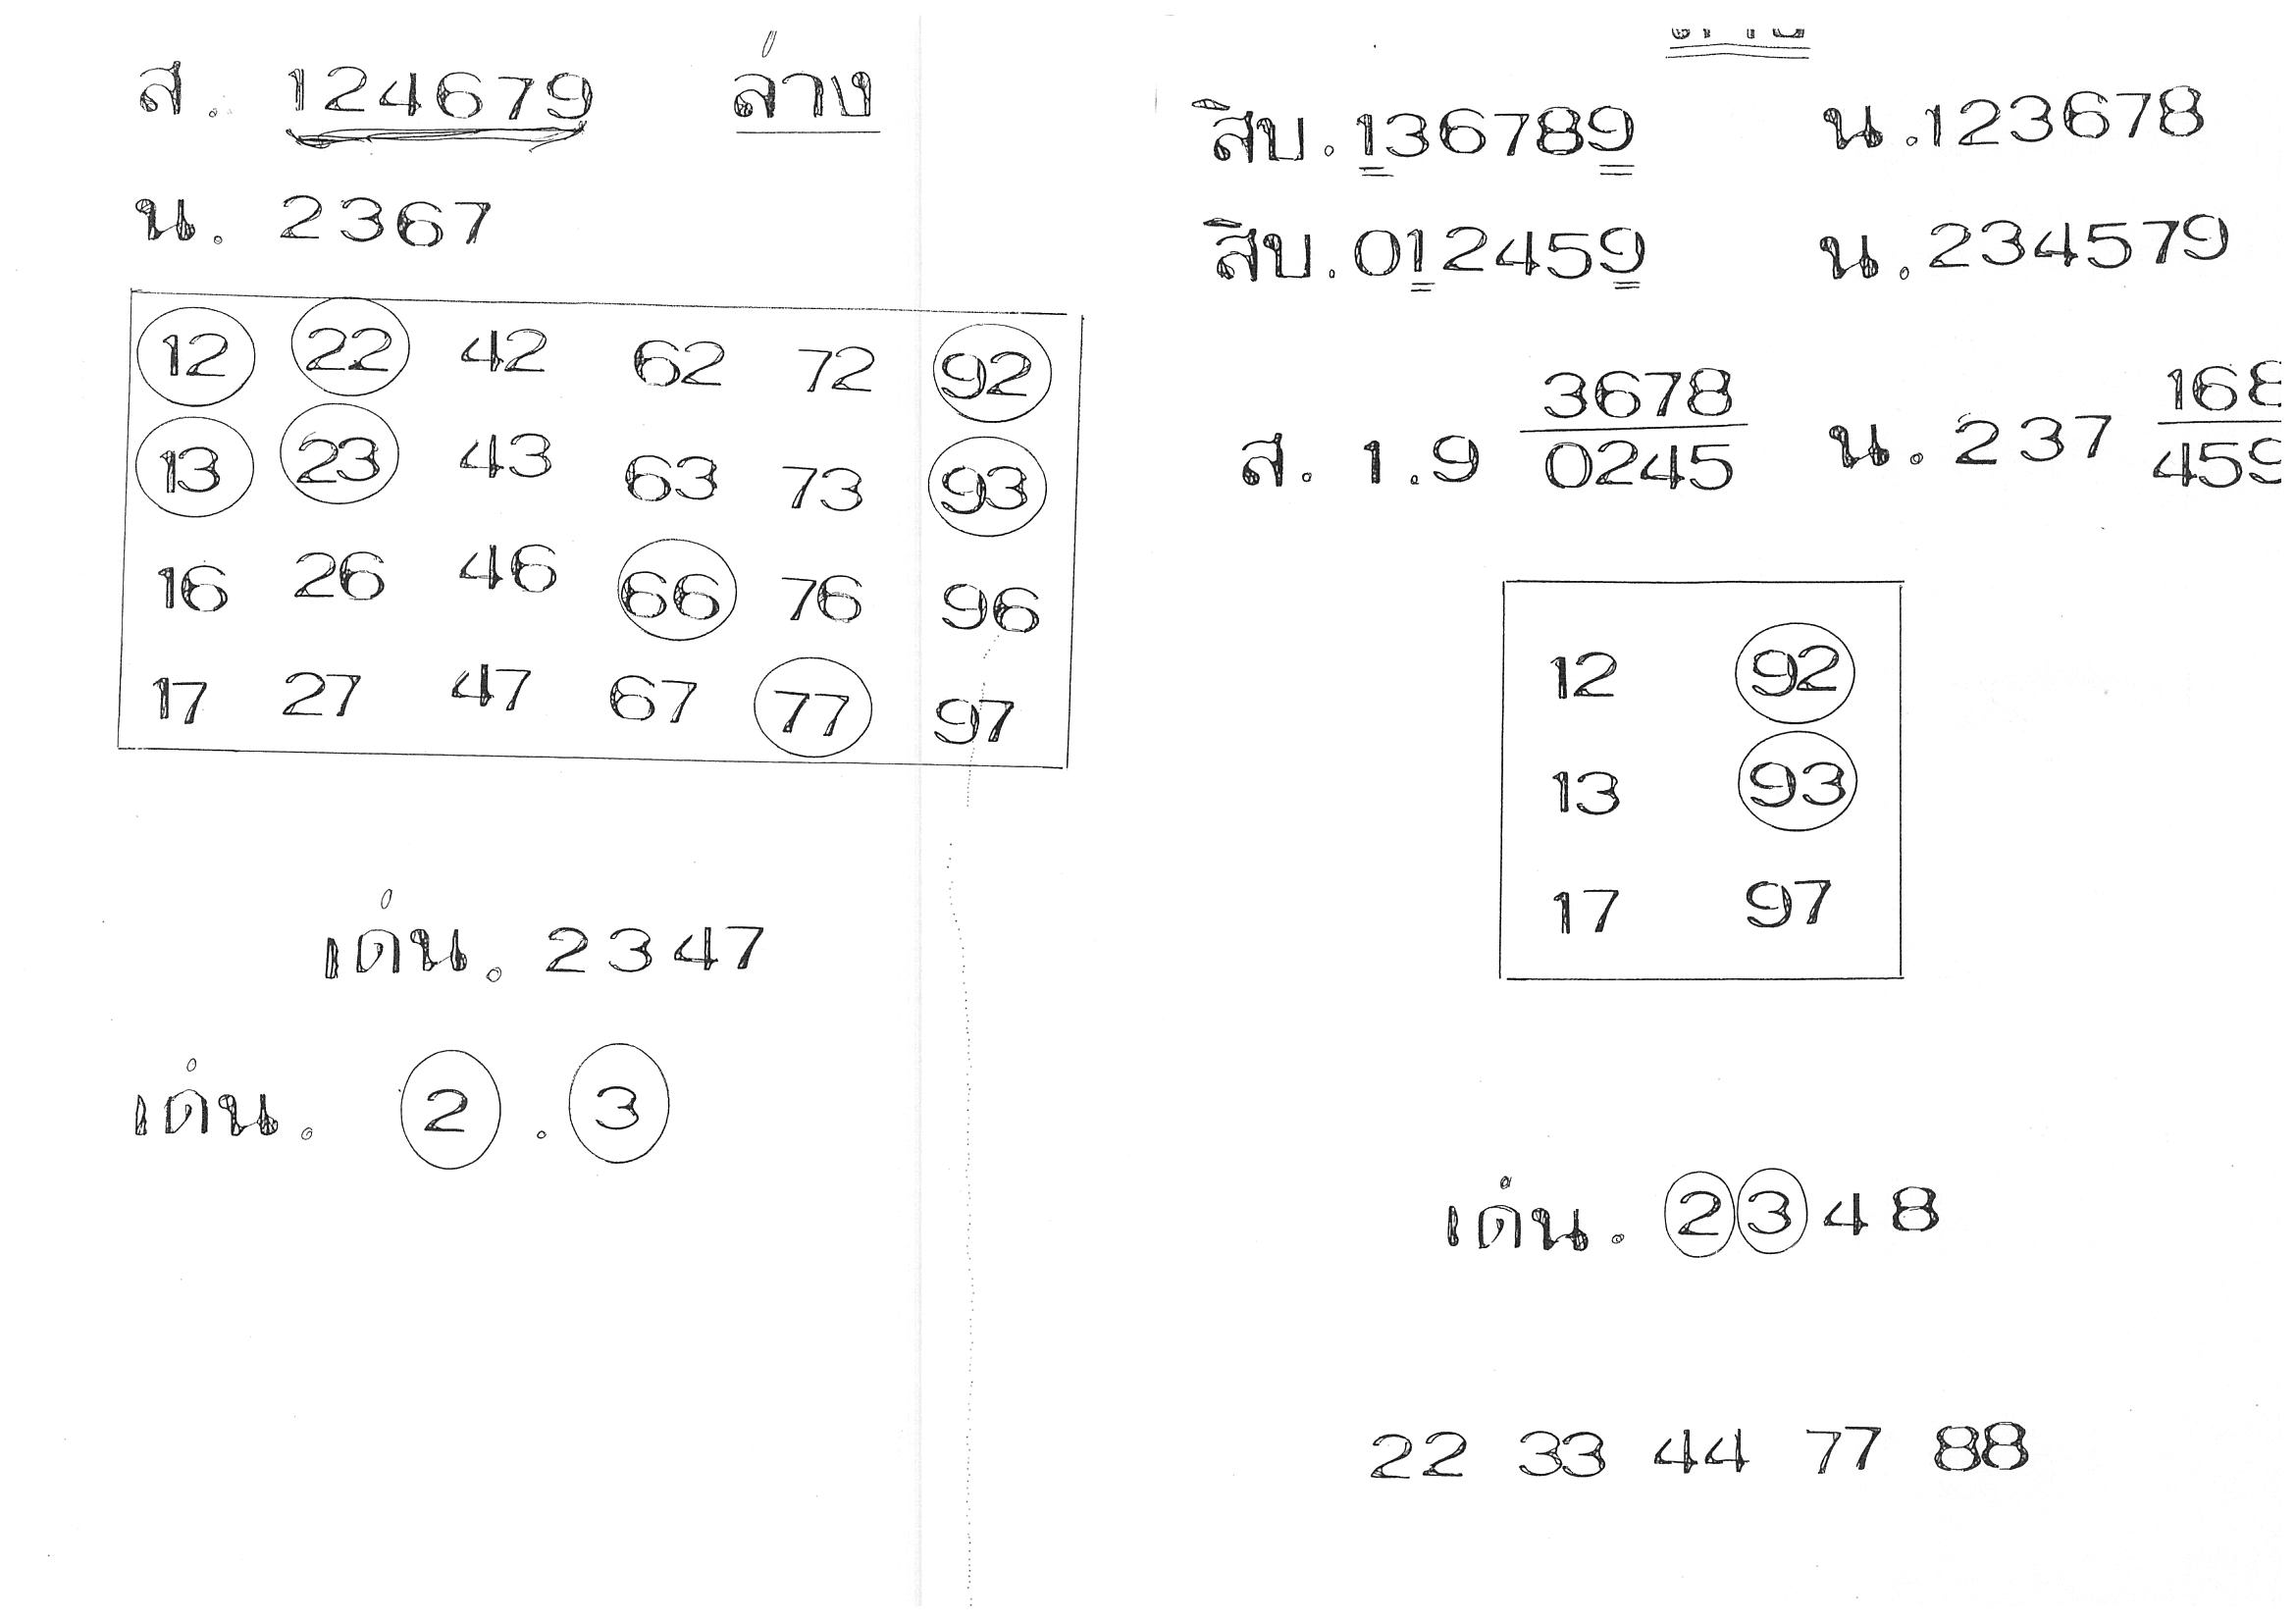 ส. 124679 ล่าง
น. 2367
12 22 42 62 72 92
13 23 43 63 73 93
16 26 46 66 76 96
17 27 47 67 77 97
เด่น. 2347
เด่น. 2 . 3
สิบ. 136789 น. 123678
สิบ. 012459 น. 234579
3678 168
ส. 1.9 น. 237
0245 459
12 92
13 93
17 97
เด่น. 2348
22 33 44 77 88